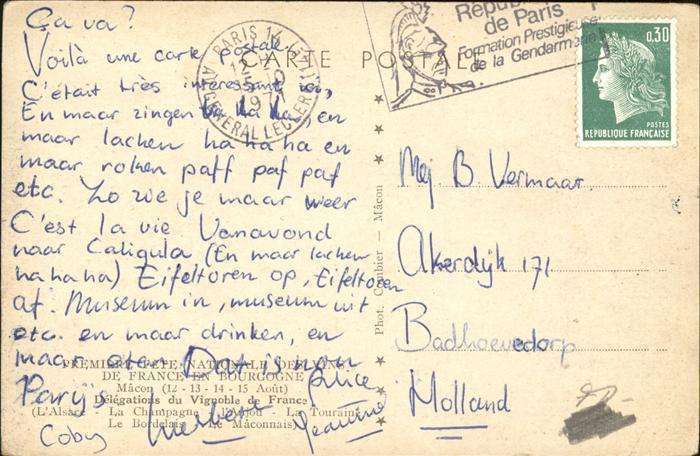 Ça va?
Voilà une carte postale.
C'était très interessant ici,
En maar zingen ha ha ha, en
maar lachen ha ha ha en
maar roken paff paf paf
etc. Zo zie je maar weer
C'est la vie Vanavond
naar Caligula (En maar lachen
ha ha ha) Eifeltoren op, Eifeltoren
af. Museum in, museum uit
etc. en maar drinken, en
maar eten Dat is nou
Parijs
Alice
Coby
Jeannine
CARTE POSTALE
PARIS 14
1971
AV. GENERAL LECLERC
de Paris
Formation Prestigieuse
de la Gendarmerie
0,30
POSTES
REPUBLIQUE FRANÇAISE
Mej B. Vermaar.
Akerdijk 171
Badhoevedorp
Holland
Phot. Combier — Mâcon
PREMIÈRE FÊTE NATIONALE DES VINS
DE FRANCE EN BOURGOGNE
Mâcon (12 - 13 - 14 - 15 Août)
Délégations du Vignoble de France
(L'Alsace - La Champagne - L'Anjou - La Touraine
Le Bordelais - Le Mâconnais)